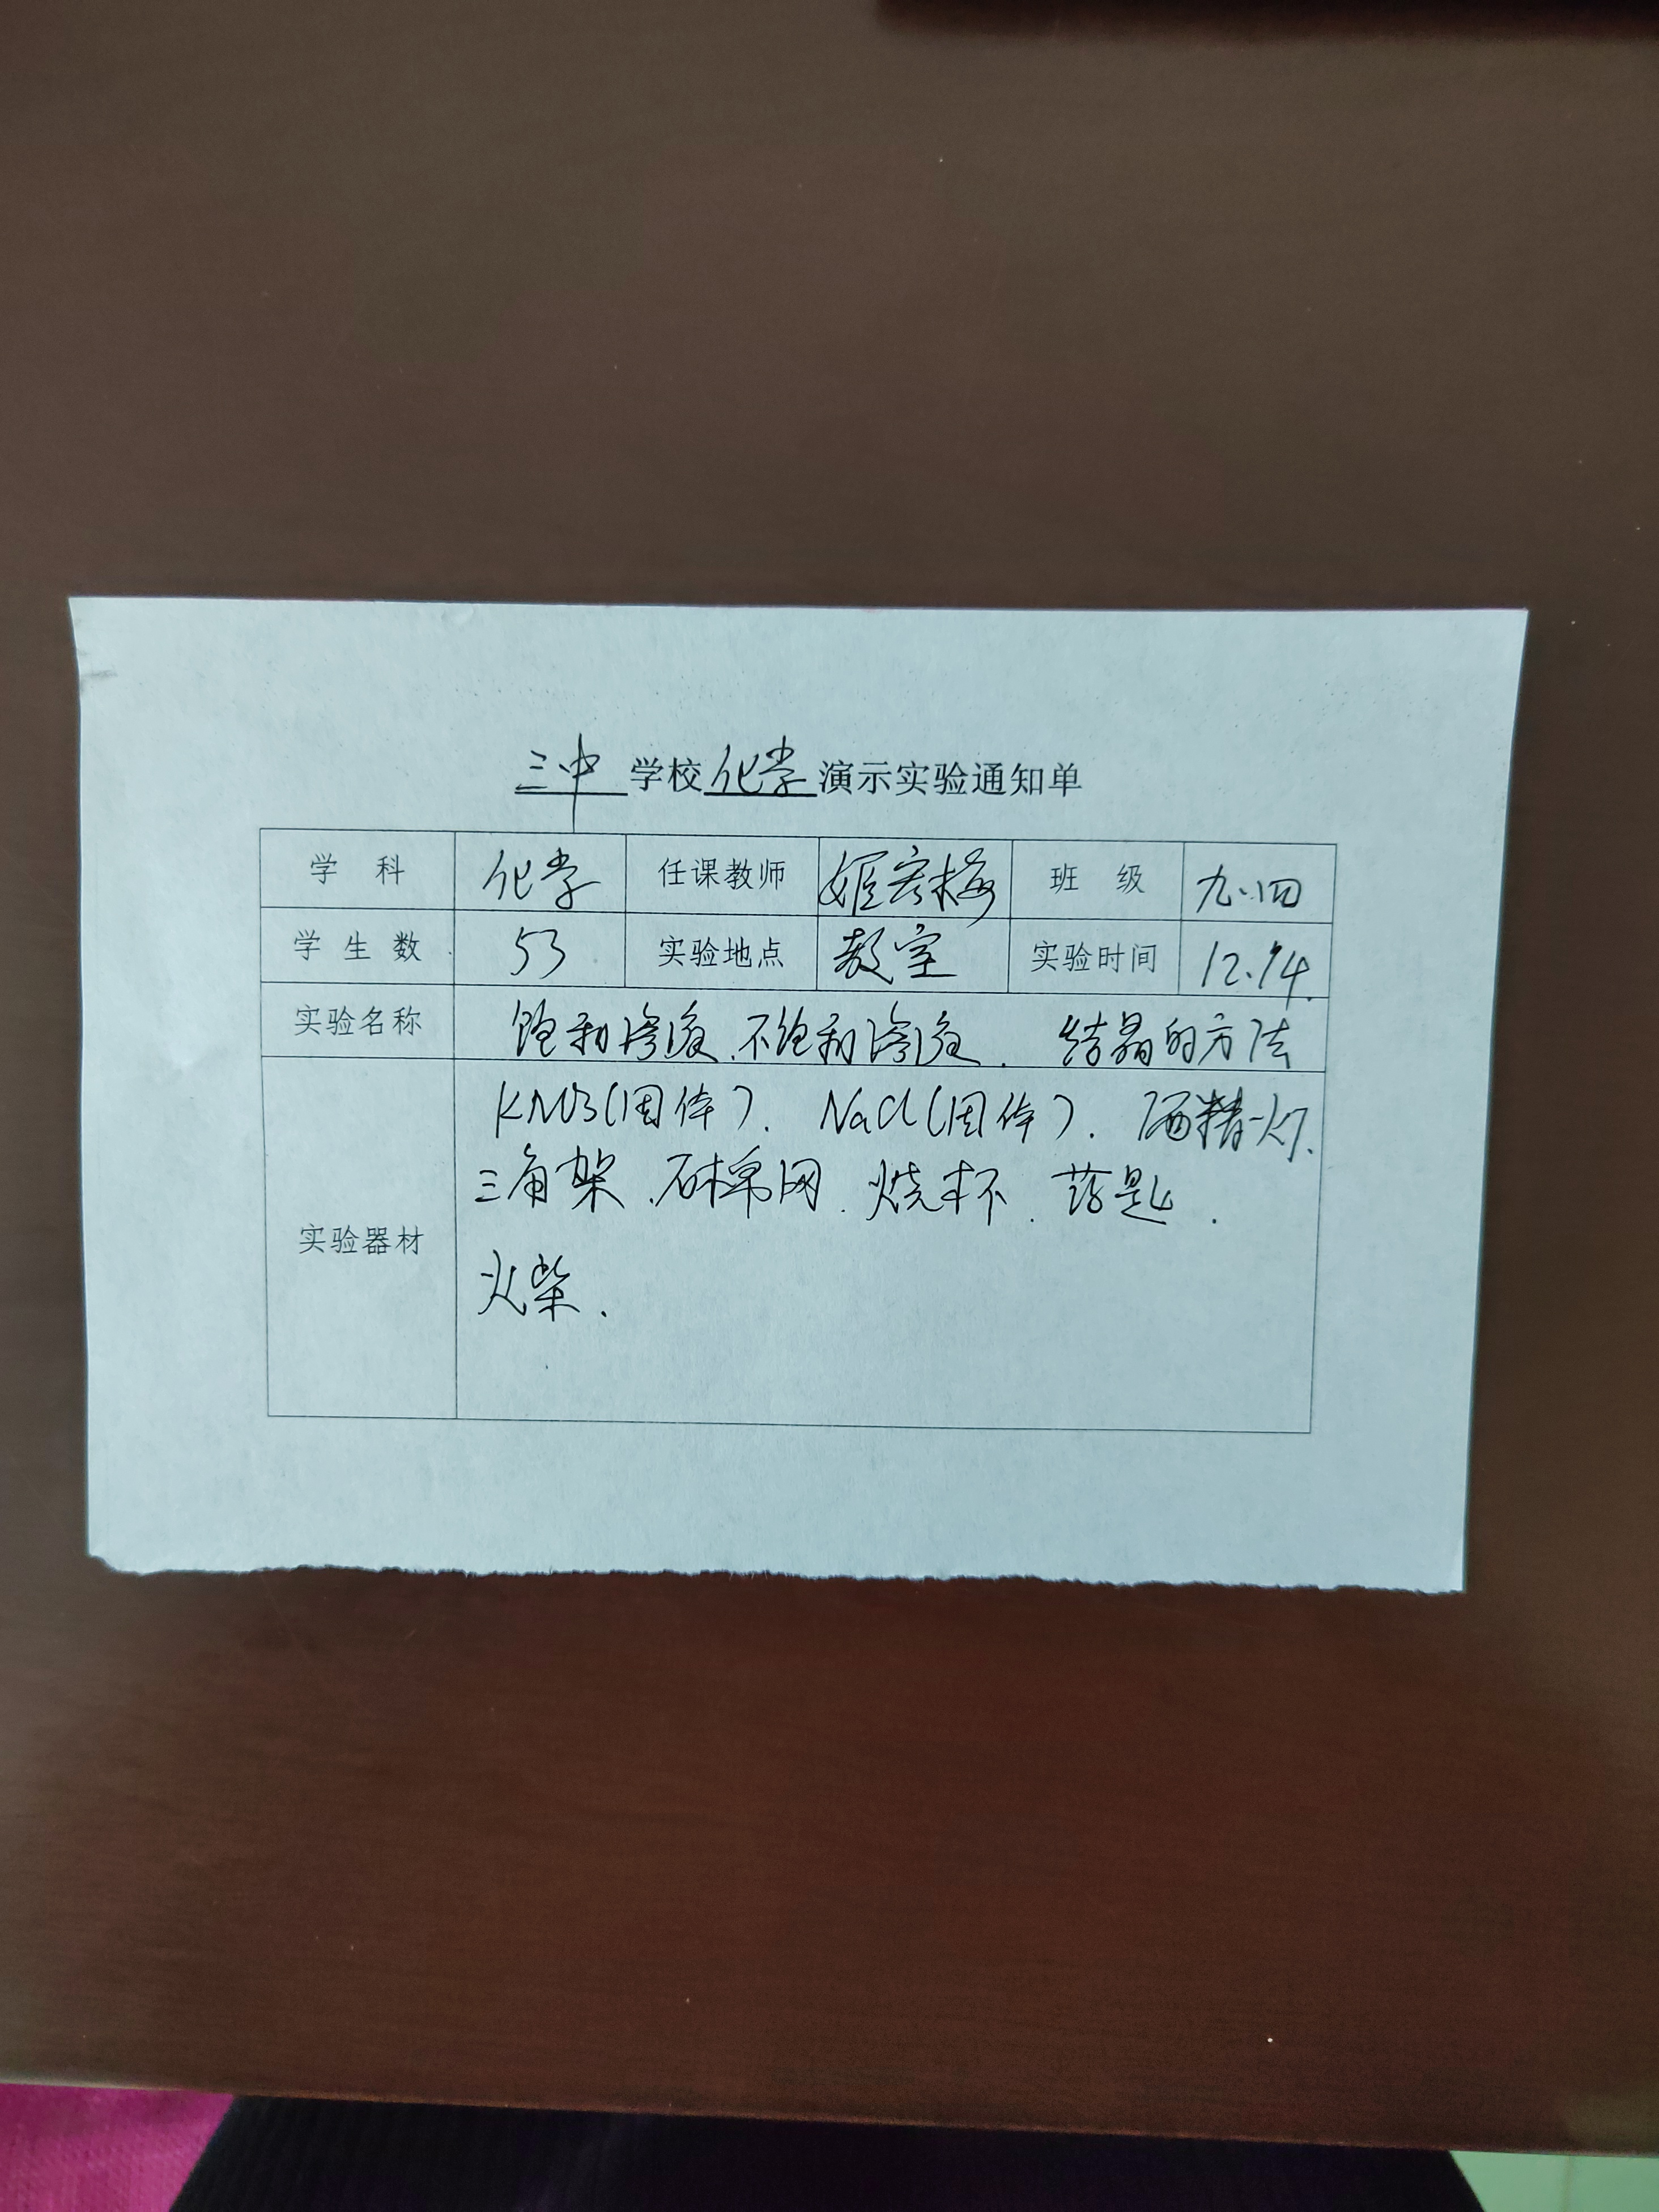 三中学校化学演示实验通知单
学科 化学 任课教师 姬宏梅 班级 九.四
学生数 53 实验地点 教室 实验时间 12.14.
实验名称 饱和溶液、不饱和溶液. 结晶的方法
KNO3(固体). NaCl(固体). 酒精灯.
三角架、石棉网. 烧杯. 药匙.
实验器材
火柴.